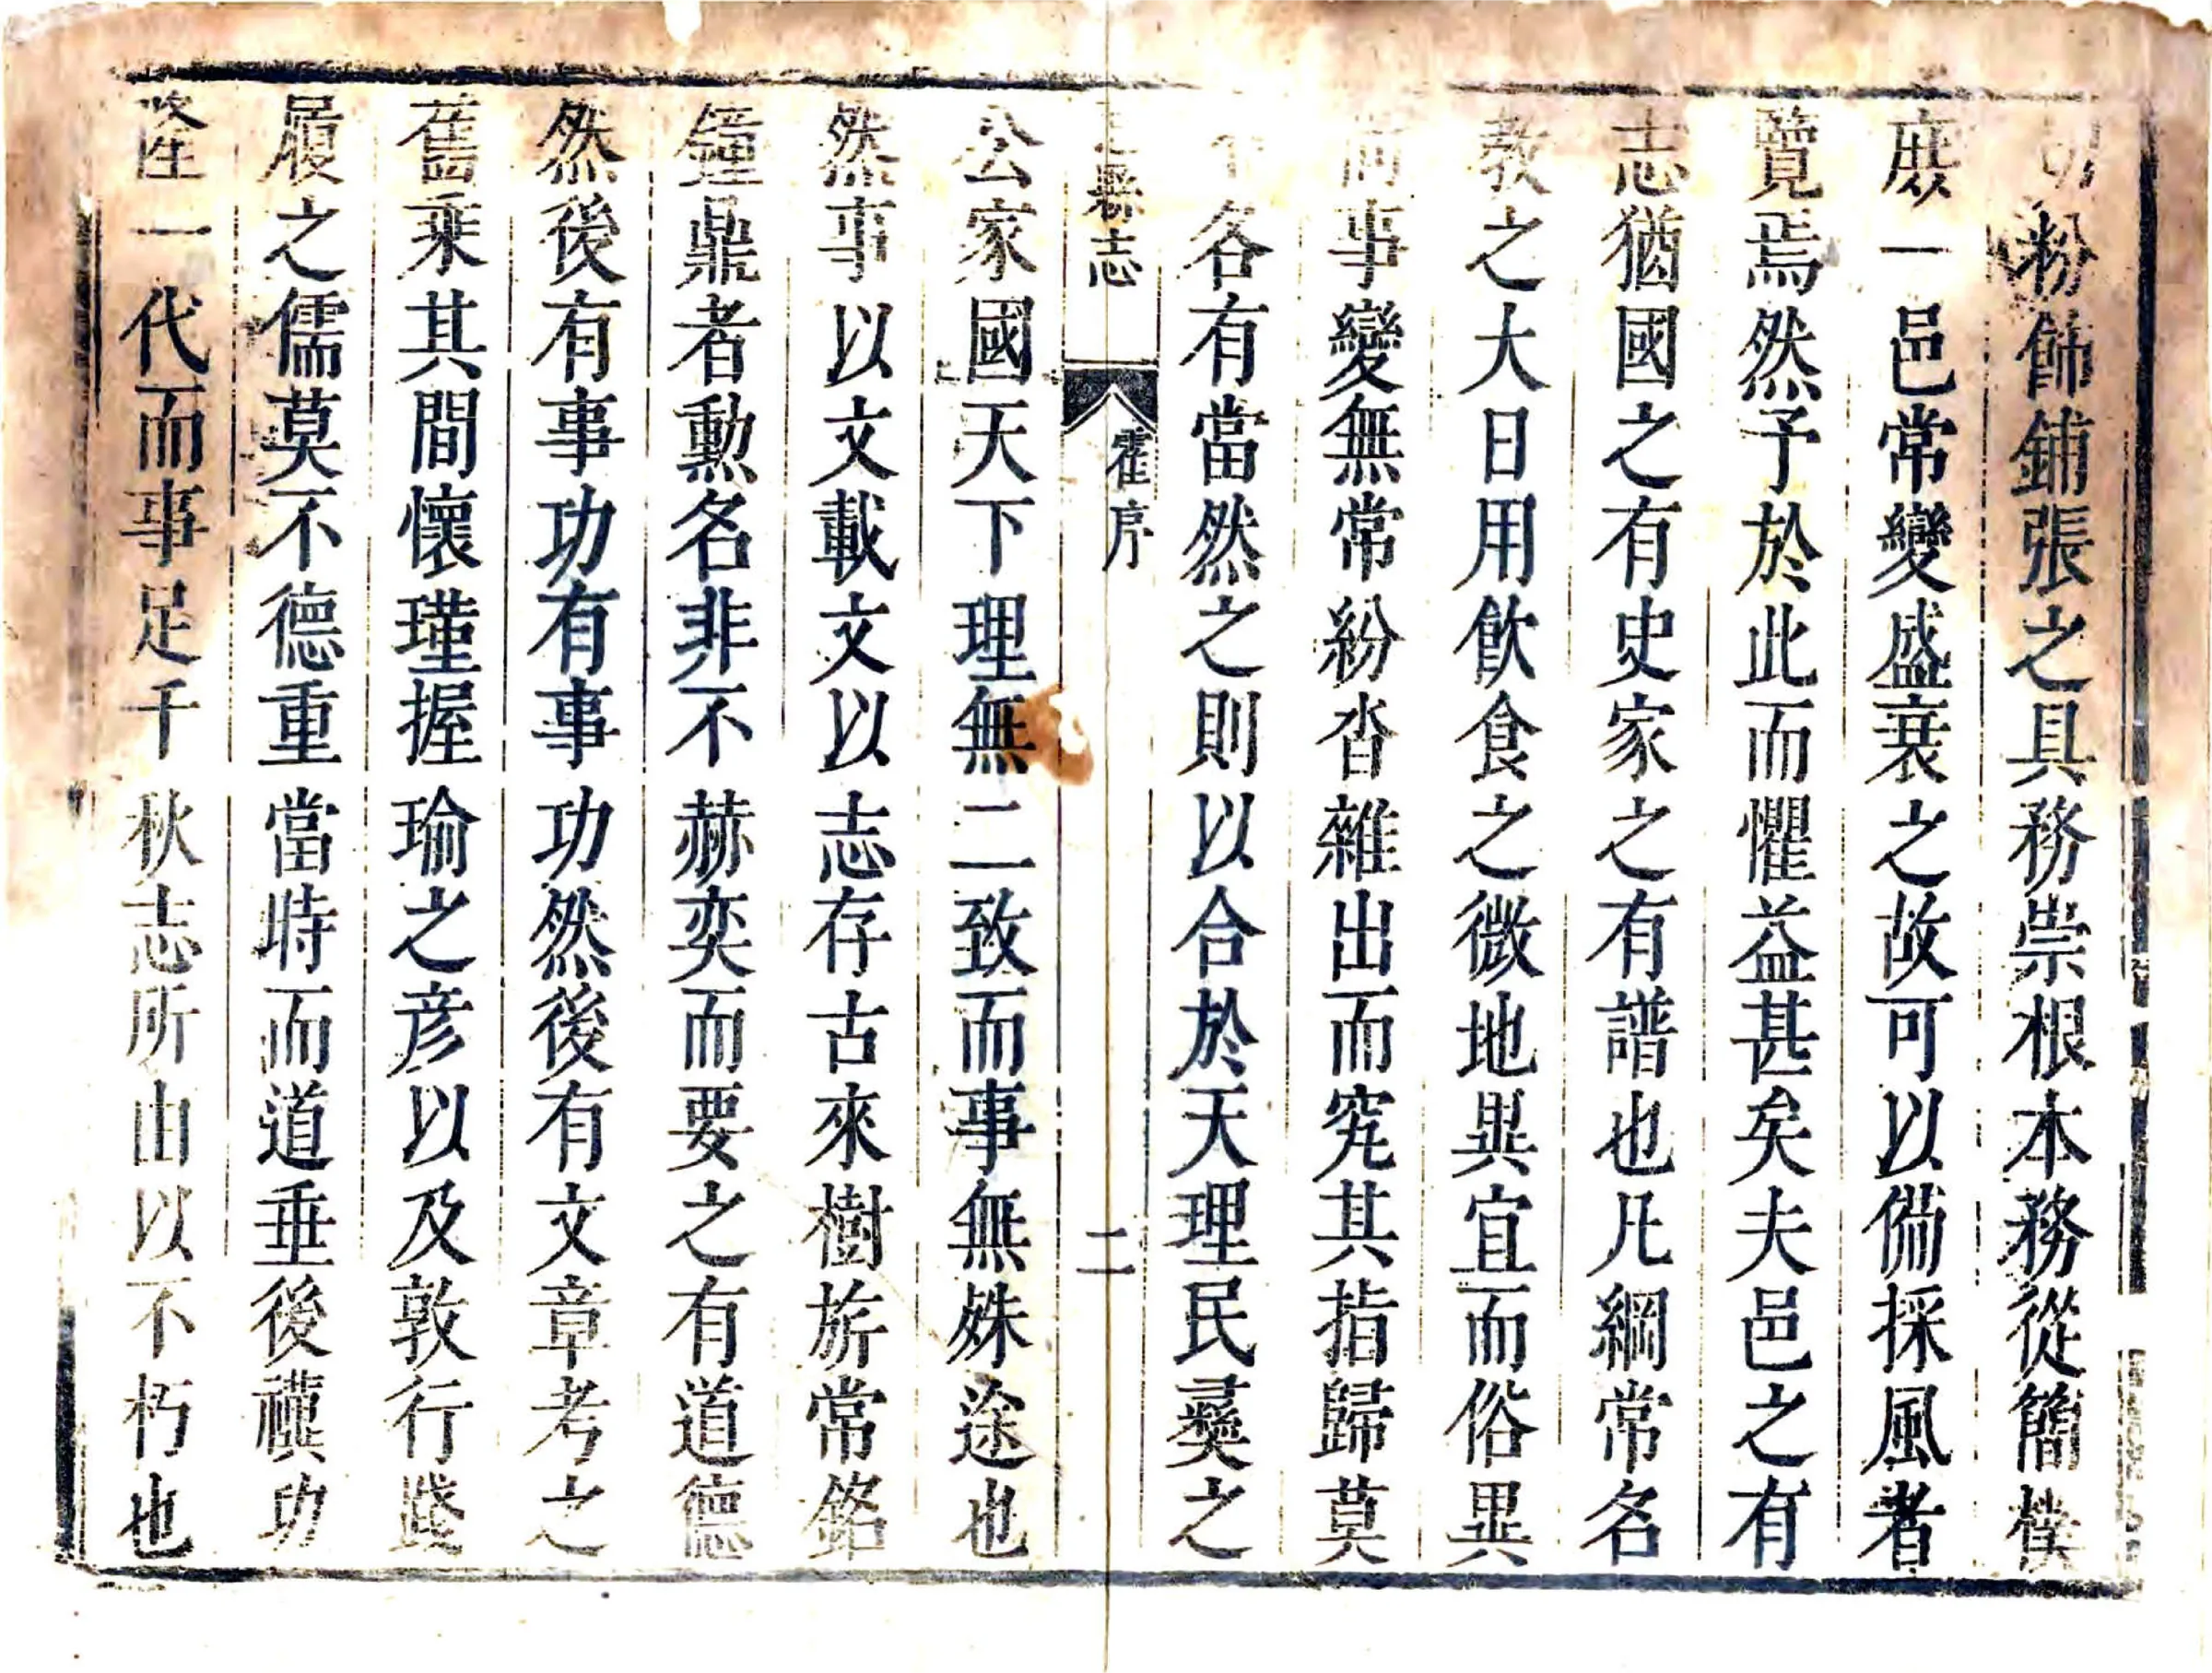 粉飾鋪張之具務崇根本務從簡樸
庶一邑常變盛衰之故可以備採風者
覽焉然予於此而懼益甚矣夫邑之有
志猶國之有史家之有譜也凡綱常名
教之大日用飲食之微地異宜而俗異
尚事變無常紛沓雜出而究其指歸莫
不各有當然之則以合於天理民彞之
縣志 霍序 二
公家國天下理無二致而事無殊途也
然事以文載文以志存古來樹旂常銘
鐘鼎者勳名非不赫奕而要之有道德
然後有事功有事功然後有文章考之
舊乘其間懷瑾握瑜之彦以及敦行踐
履之儒莫不德重當時而道垂後禩功
一代而事足千秋志所由以不朽也